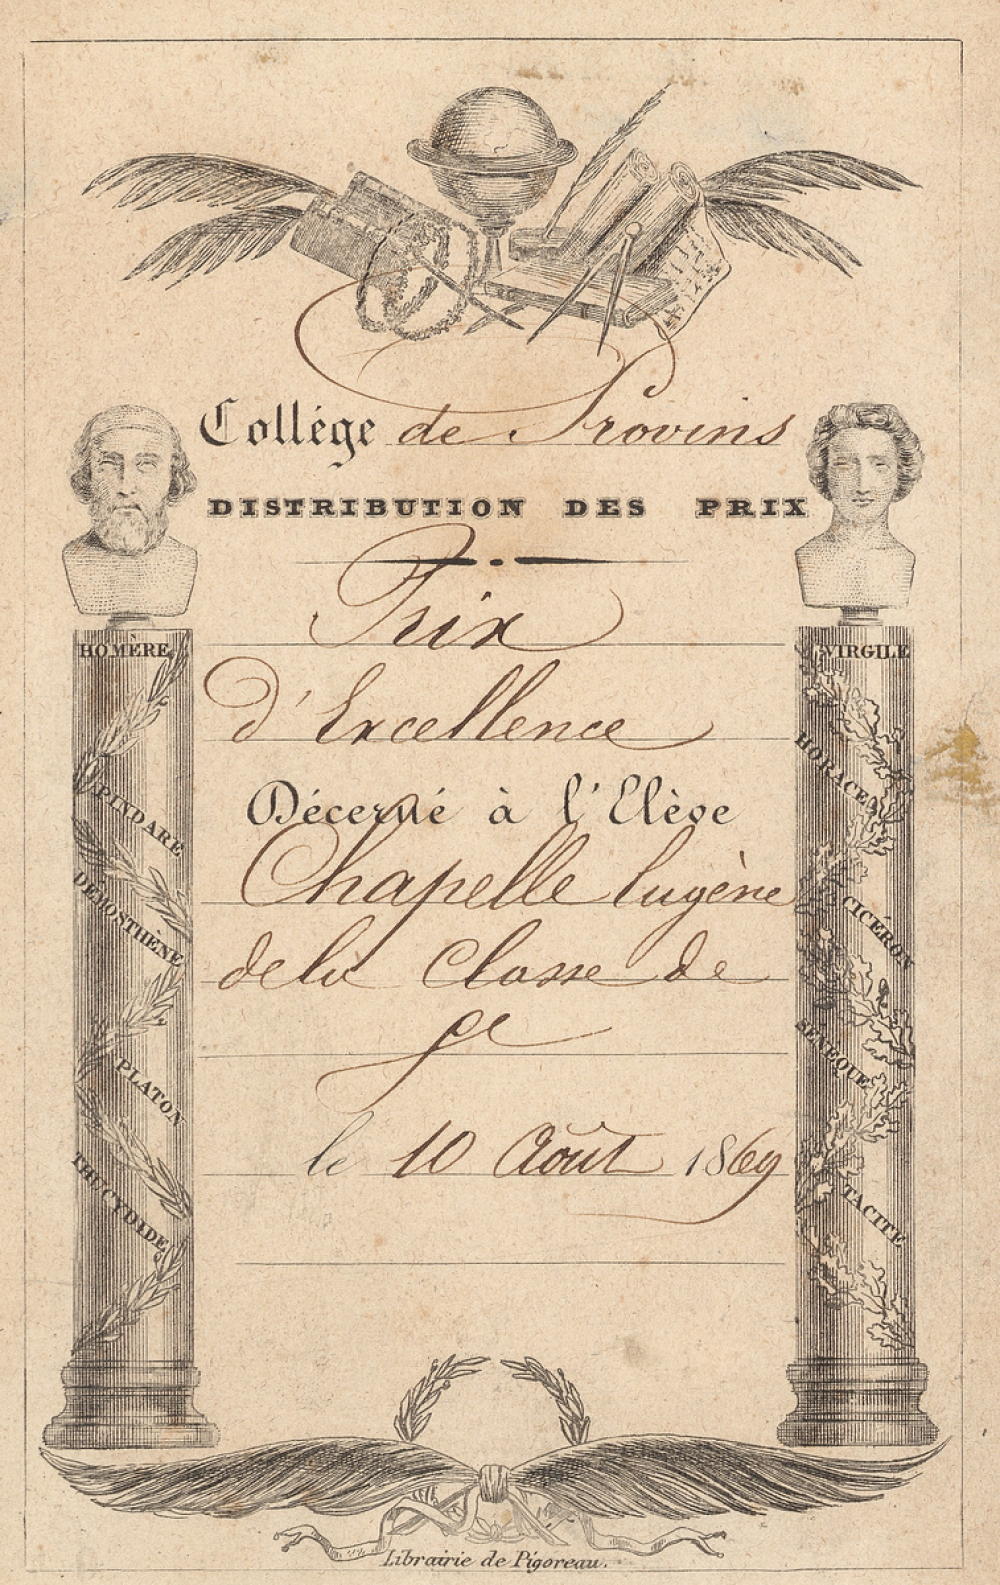 Collége de Provins
DISTRIBUTION DES PRIX
Prix
d'Excellence
Décerné à l'Elève
Chapelle Eugène
de la Classe de
le 10 Août 1869
HOMÈRE
PINDARE
DÉMOSTHÈNE
PLATON
THUCYDIDE
VIRGILE
HORACE
CICÉRON
SÉNÈQUE
TACITE
Librairie de Pigoreau.